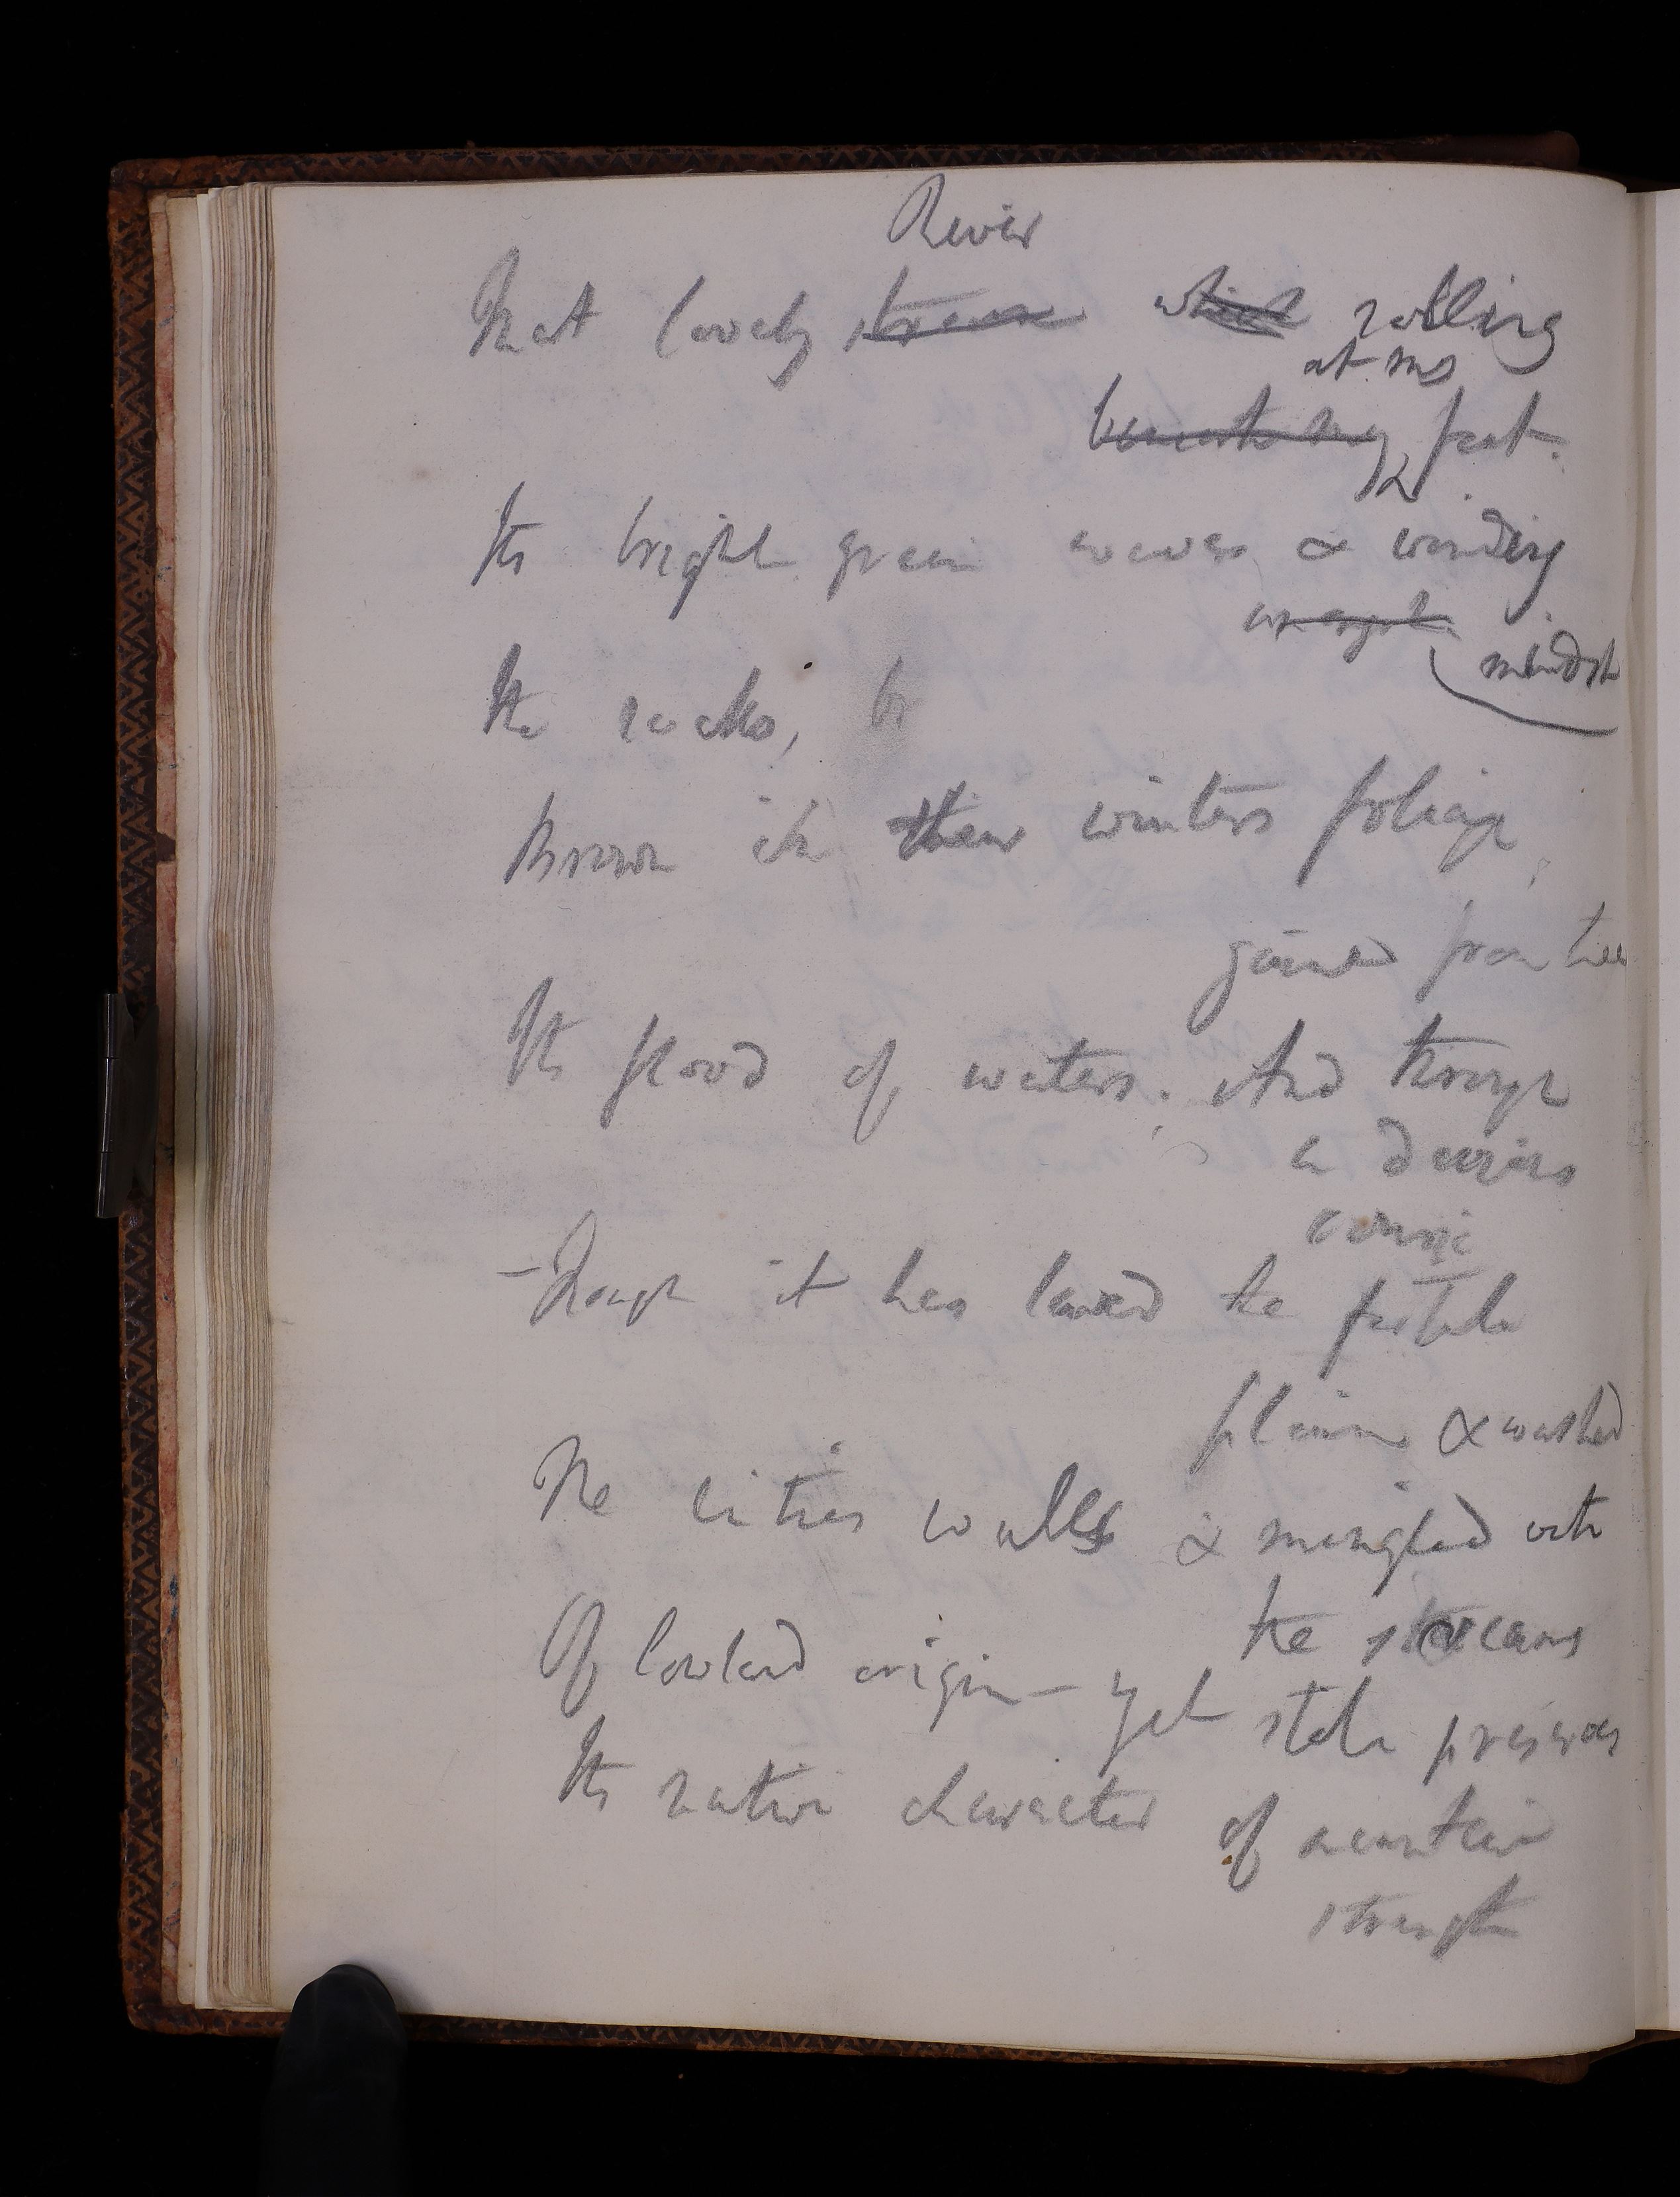 River
That lovely stream which rolling
at my
beneath my feet.
Its bright green waves & winding
amidst
the rocks, br
Brown in their winters foliage,
gained from thee
Its flood of waters. And though
a devious
course
– Though it has laved the fertile
plains & washed
The cities walls & mingled with
the streams
Of lowland origin – yet stile preserves
Its native character of mountain
strength